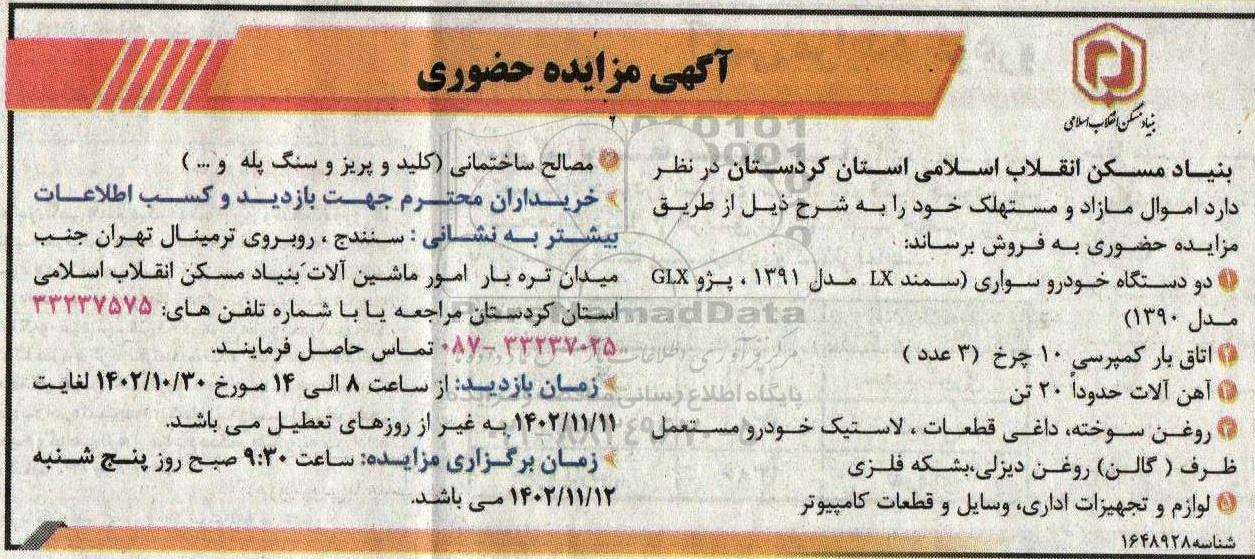 آگهی مزایده حضوری
بنیاد مسکن انقلاب اسلامی
بنیاد مسکن انقلاب اسلامی استان کردستان در نظر
دارد اموال مازاد و مستهلک خود را به شرح ذیل از طریق
مزایده حضوری به فروش برساند:
۱ دو دستگاه خودرو سواری (سمند LX مدل ۱۳۹۱ ، پژو GLX
مدل ۱۳۹۰)
۲ اتاق بار کمپرسی ۱۰ چرخ (۳ عدد )
۳ آهن آلات حدوداً ۲۰ تن
۴ روغن سوخته، داغی قطعات ، لاستیک خودرو مستعمل
ظرف ( گالن) روغن دیزلی،بشکه فلزی
۵ لوازم و تجهیزات اداری، وسایل و قطعات کامپیوتر
شناسه۱۶۴۸۹۲۸
۶ مصالح ساختمانی (کلید و پریز و سنگ پله و ... )
خریداران محترم جهت بازدید و کسب اطلاعات
بیشتر به نشانی : سنندج ، روبروی ترمینال تهران جنب
میدان تره بار امور ماشین آلات بنیاد مسکن انقلاب اسلامی
استان کردستان مراجعه یا با شماره تلفن های: ۳۳۲۳۷۵۷۵
۰۸۷-۳۳۲۳۷۰۲۵ تماس حاصل فرمایند.
زمان بازدید: از ساعت ۸ الی ۱۴ مورخ ۱۴۰۲/۱۰/۳۰ لغایت
۱۴۰۲/۱۱/۱۱ به غیر از روزهای تعطیل می باشد.
زمان برگزاری مزایده: ساعت ۹:۳۰ صبح روز پنج شنبه
۱۴۰۲/۱۱/۱۲ می باشد.
ParsNamadData
پایگاه اطلاع رسانی مناقصه و مزایده